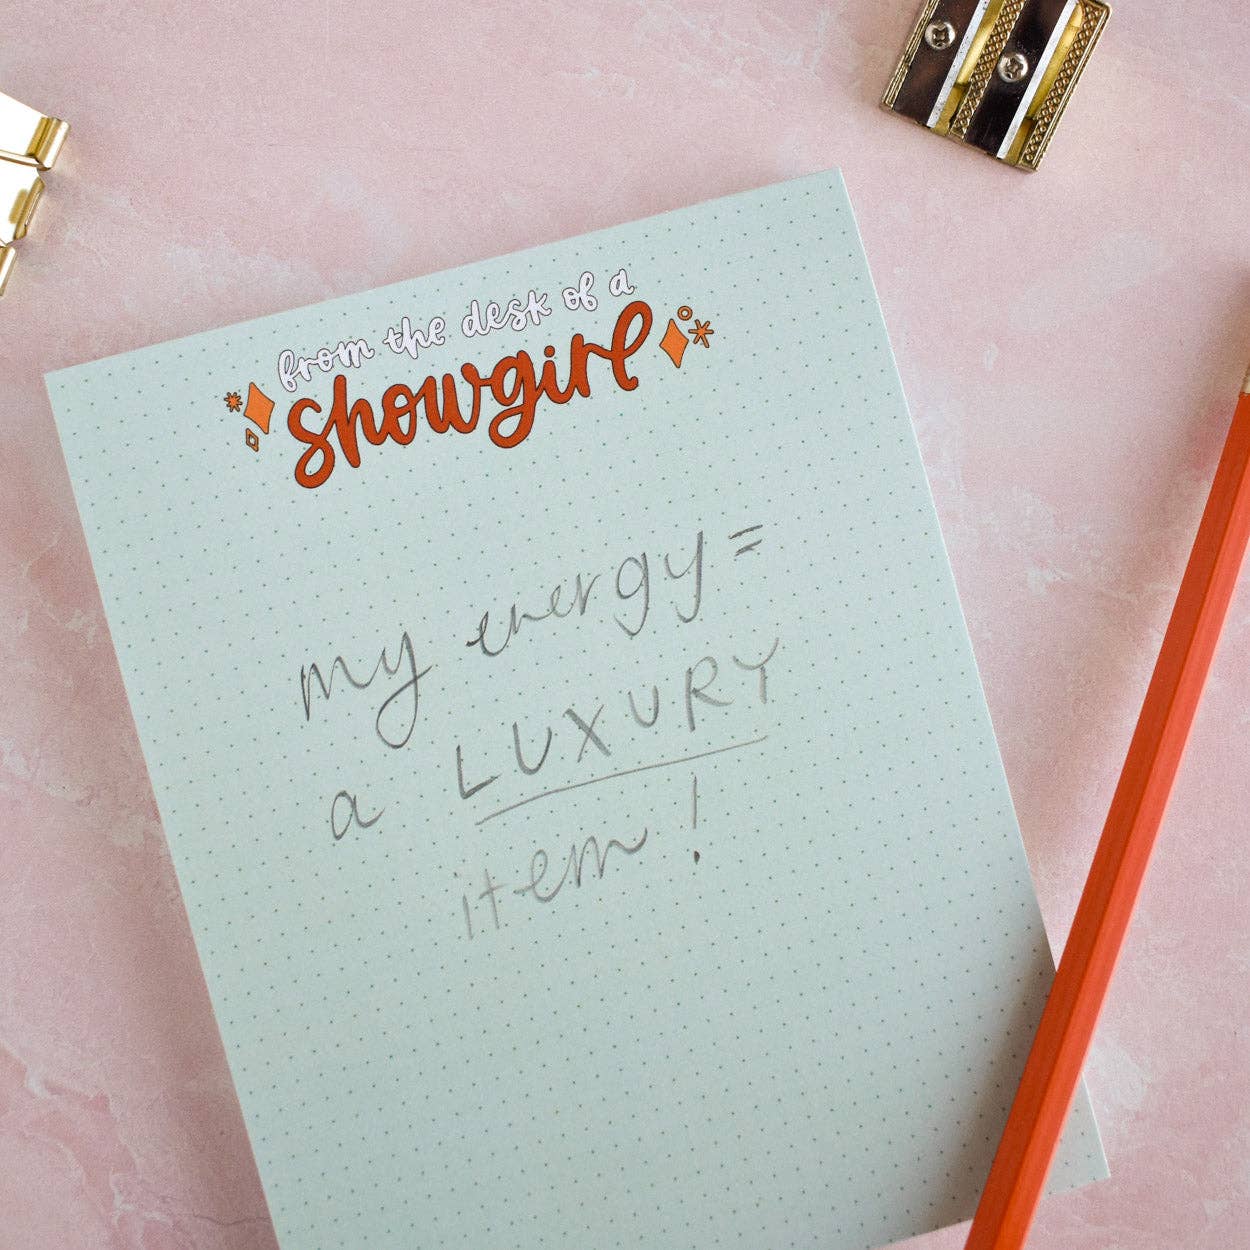 from the desk of a
showgirl
my energy =
a LUXURY
item!